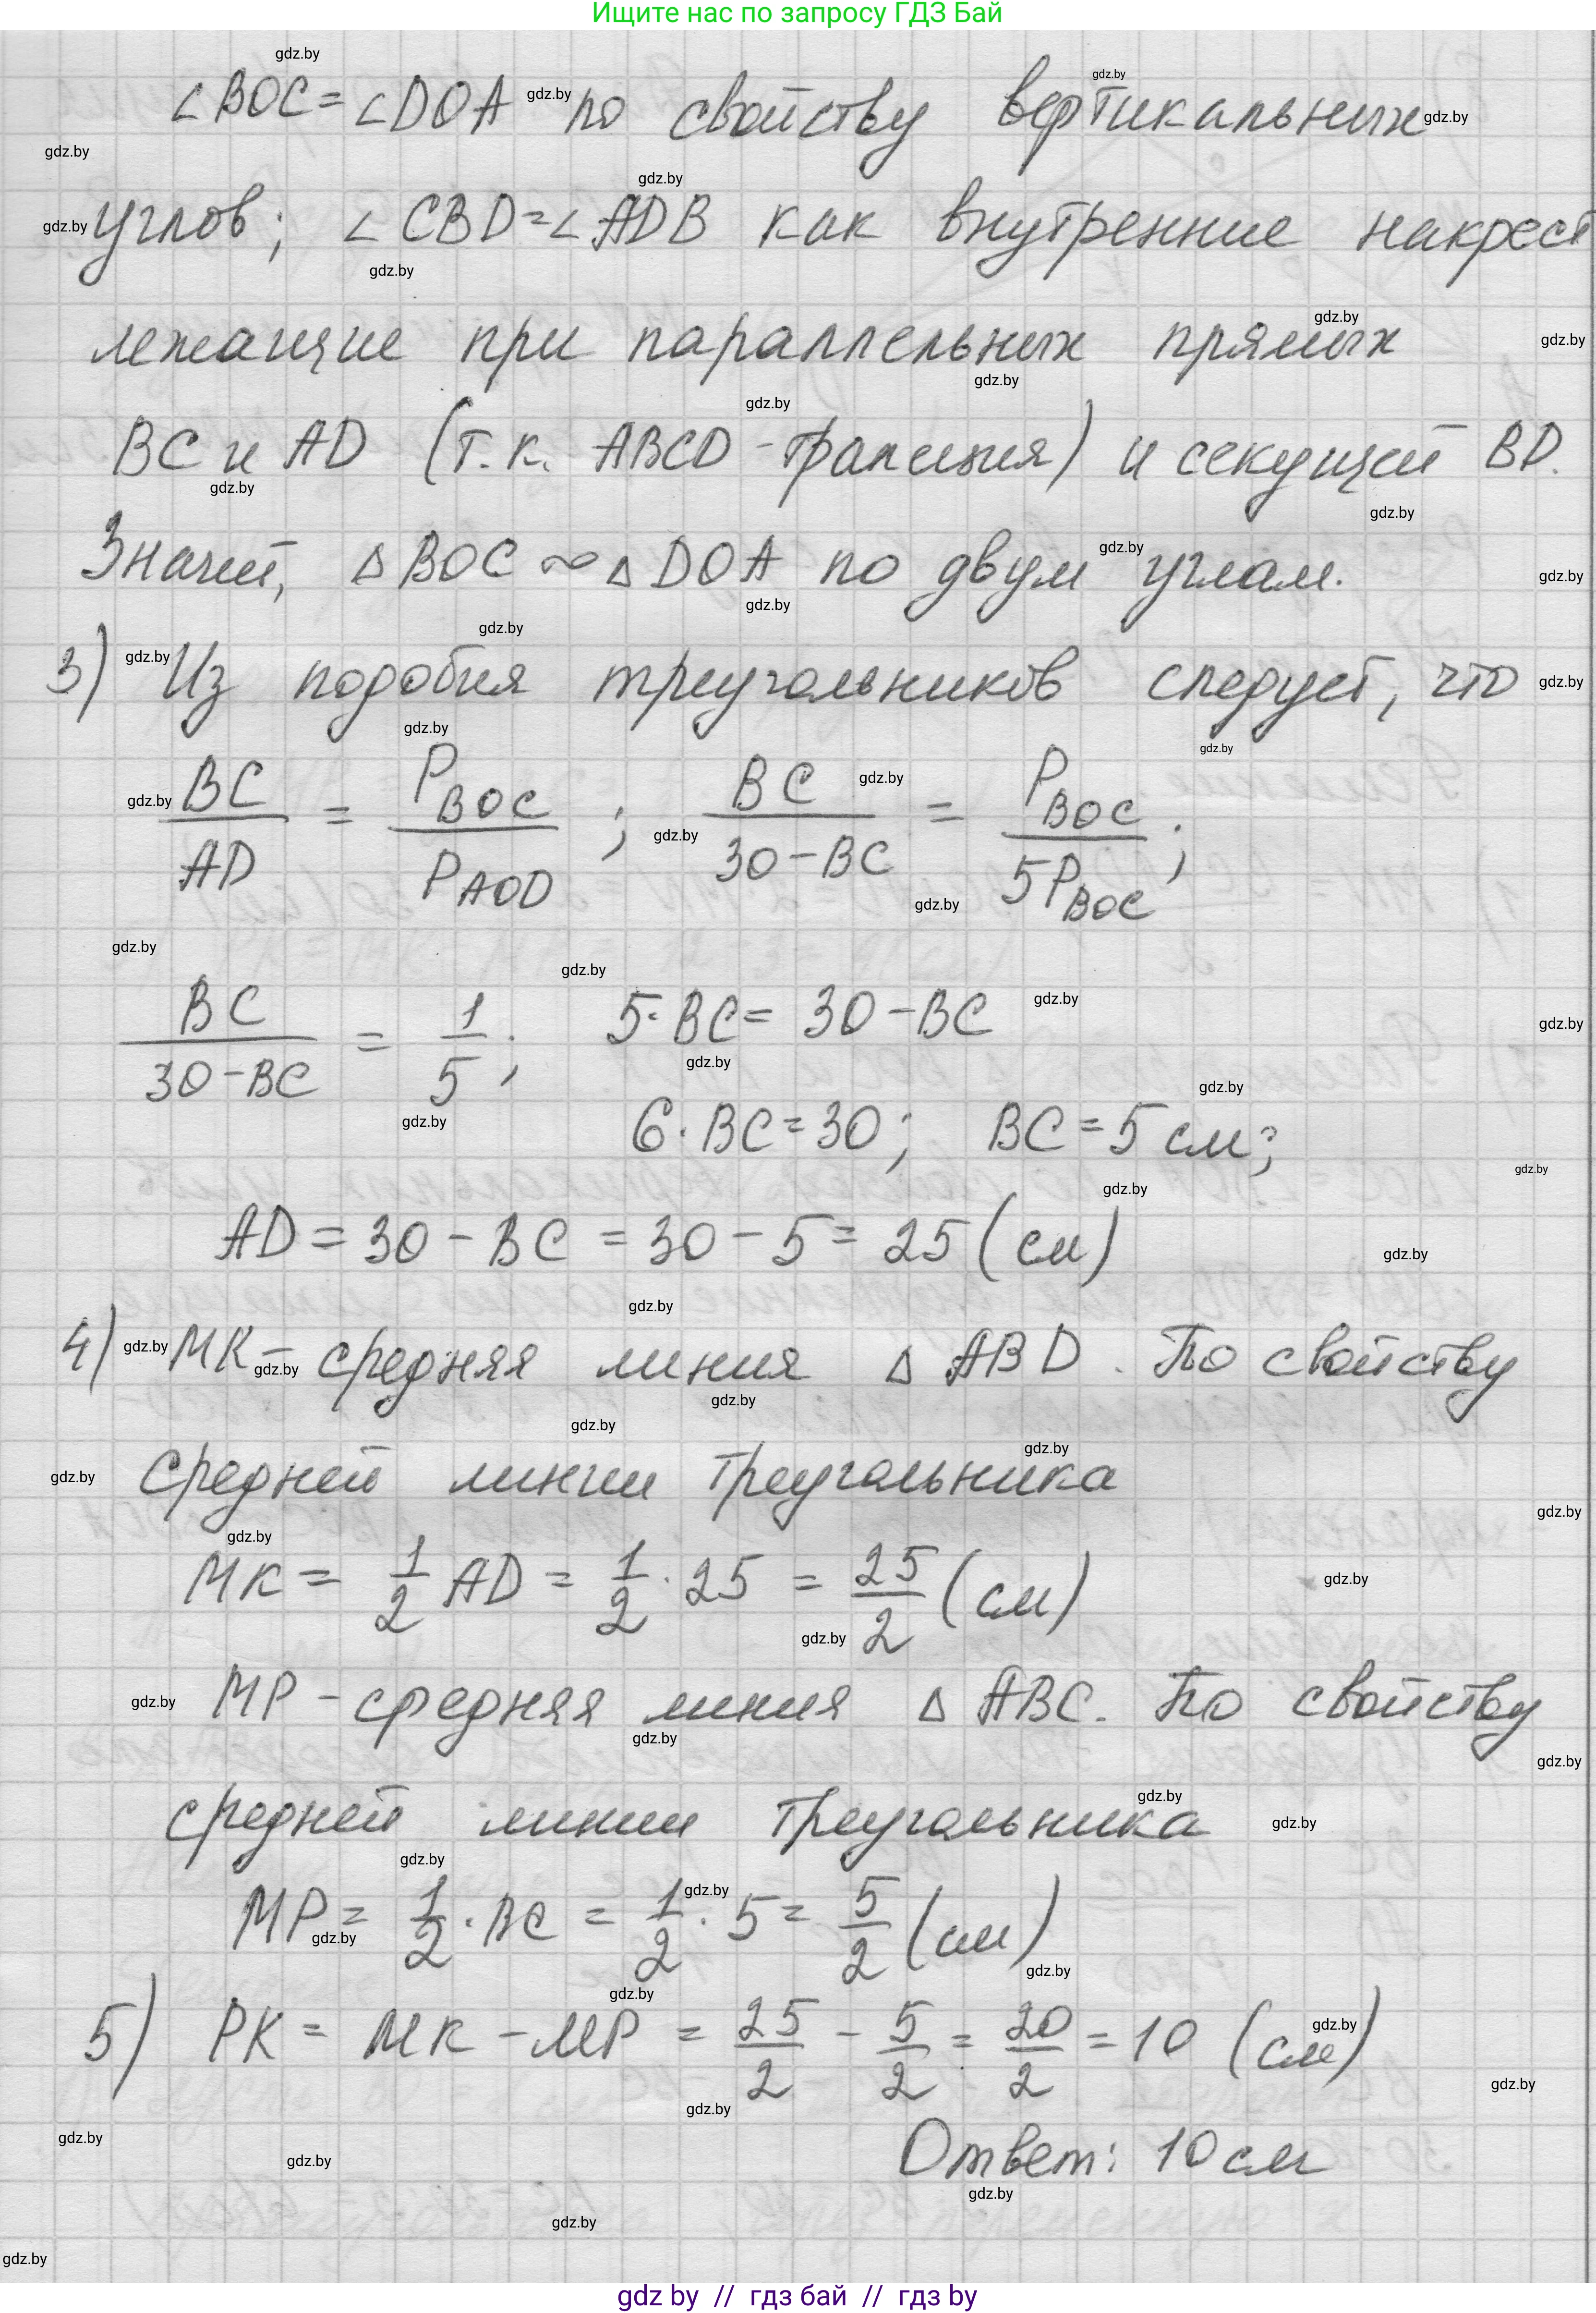 Ищите нас по запросу ГДЗ Бай
∠BOC = ∠DOA по свойству вертикальных
углов; ∠CBD = ∠ADB как внутренние накрест
лежащие при параллельных прямых
BC и AD (т.к. ABCD - трапеция) и секущей BD.
Значит, △BOC ∾ △DOA по двум углам.
3) Из подобия треугольников следует, что
BC/AD = P_BOC/P_AOD ; BC/(30-BC) = P_BOC/5P_BOC ;
BC/(30-BC) = 1/5 ; 5·BC = 30-BC
6·BC = 30; BC = 5 см;
AD = 30 - BC = 30 - 5 = 25 (см)
4) MK - средняя линия △ABD. По свойству
средней линии треугольника
MK = 1/2 AD = 1/2 · 25 = 25/2 (см)
MP - средняя линия △ABC. По свойству
средней линии треугольника
MP = 1/2 · BC = 1/2 · 5 = 5/2 (см)
5) PK = MK - MP = 25/2 - 5/2 = 20/2 = 10 (см)
Ответ: 10 см
gdz by // гдз бай // гдз by